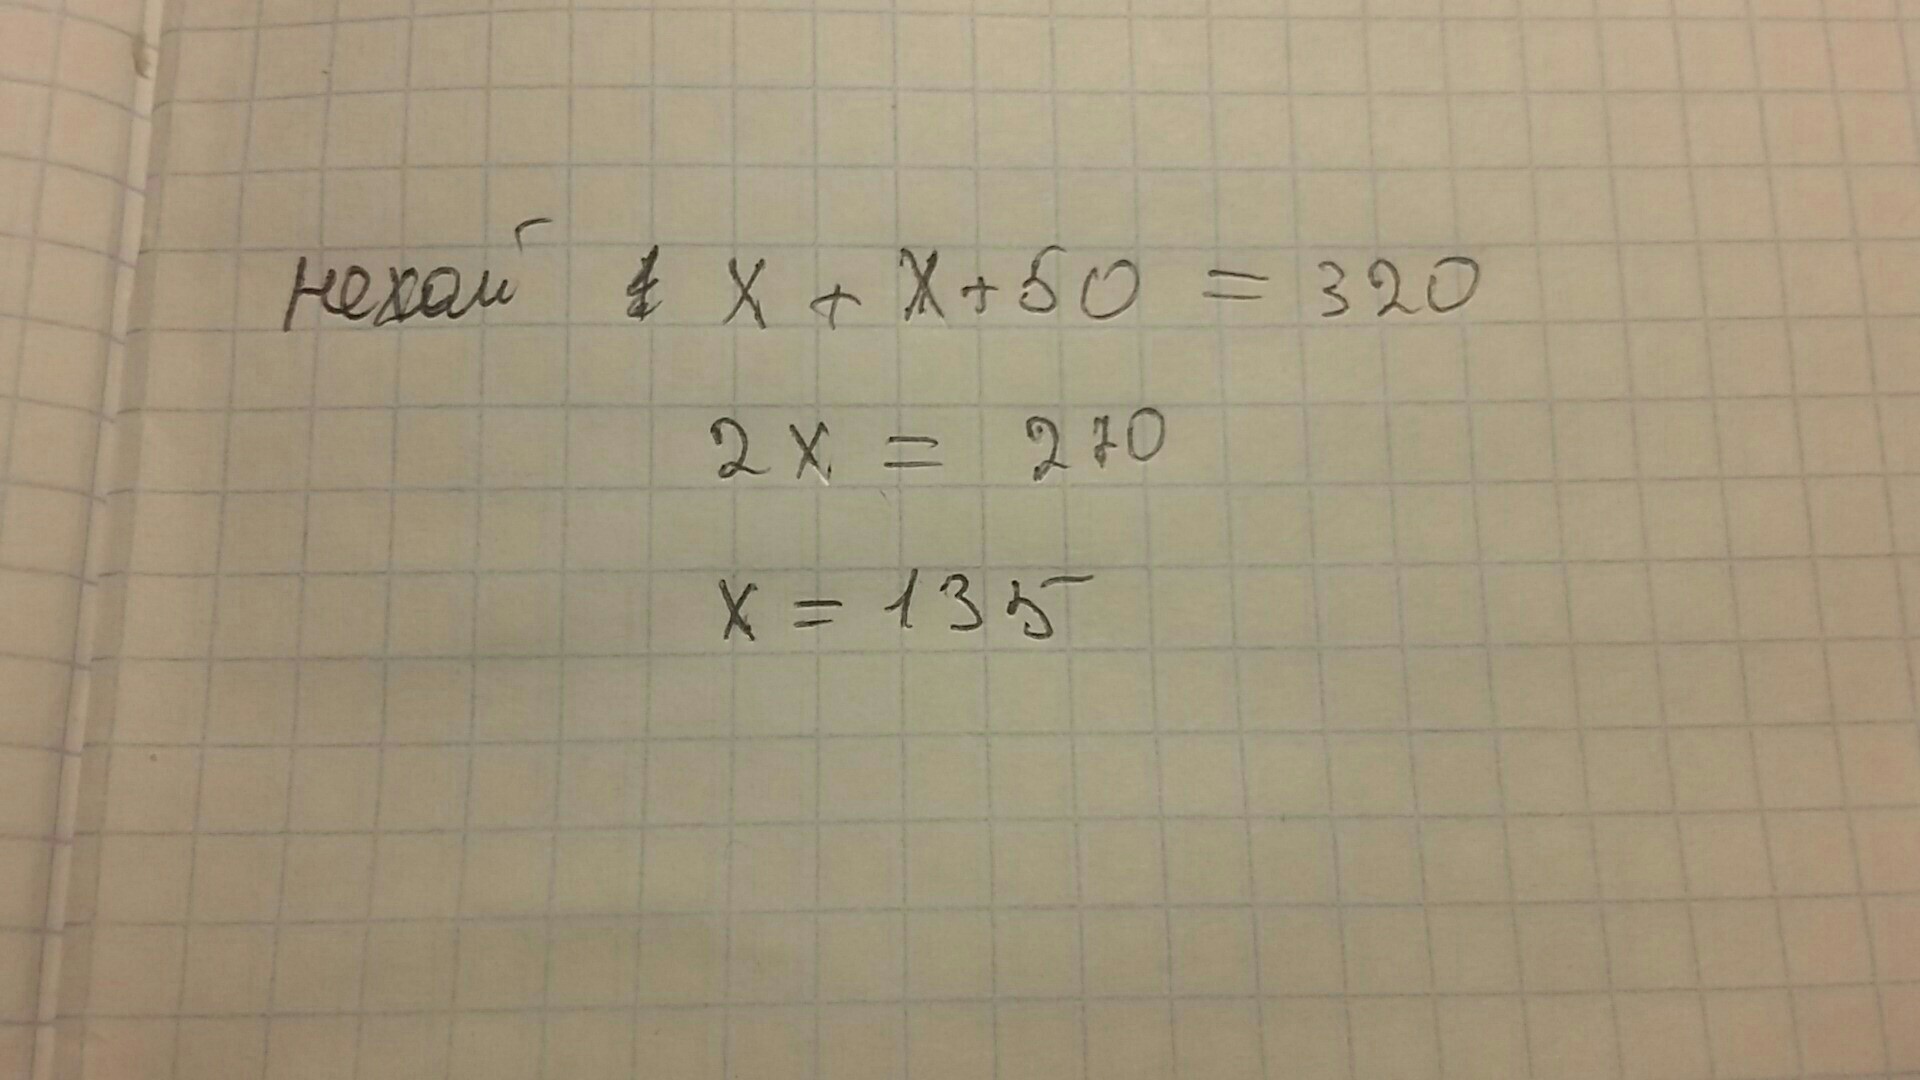 нехай x + x + 50 = 320
2x = 270
x = 135